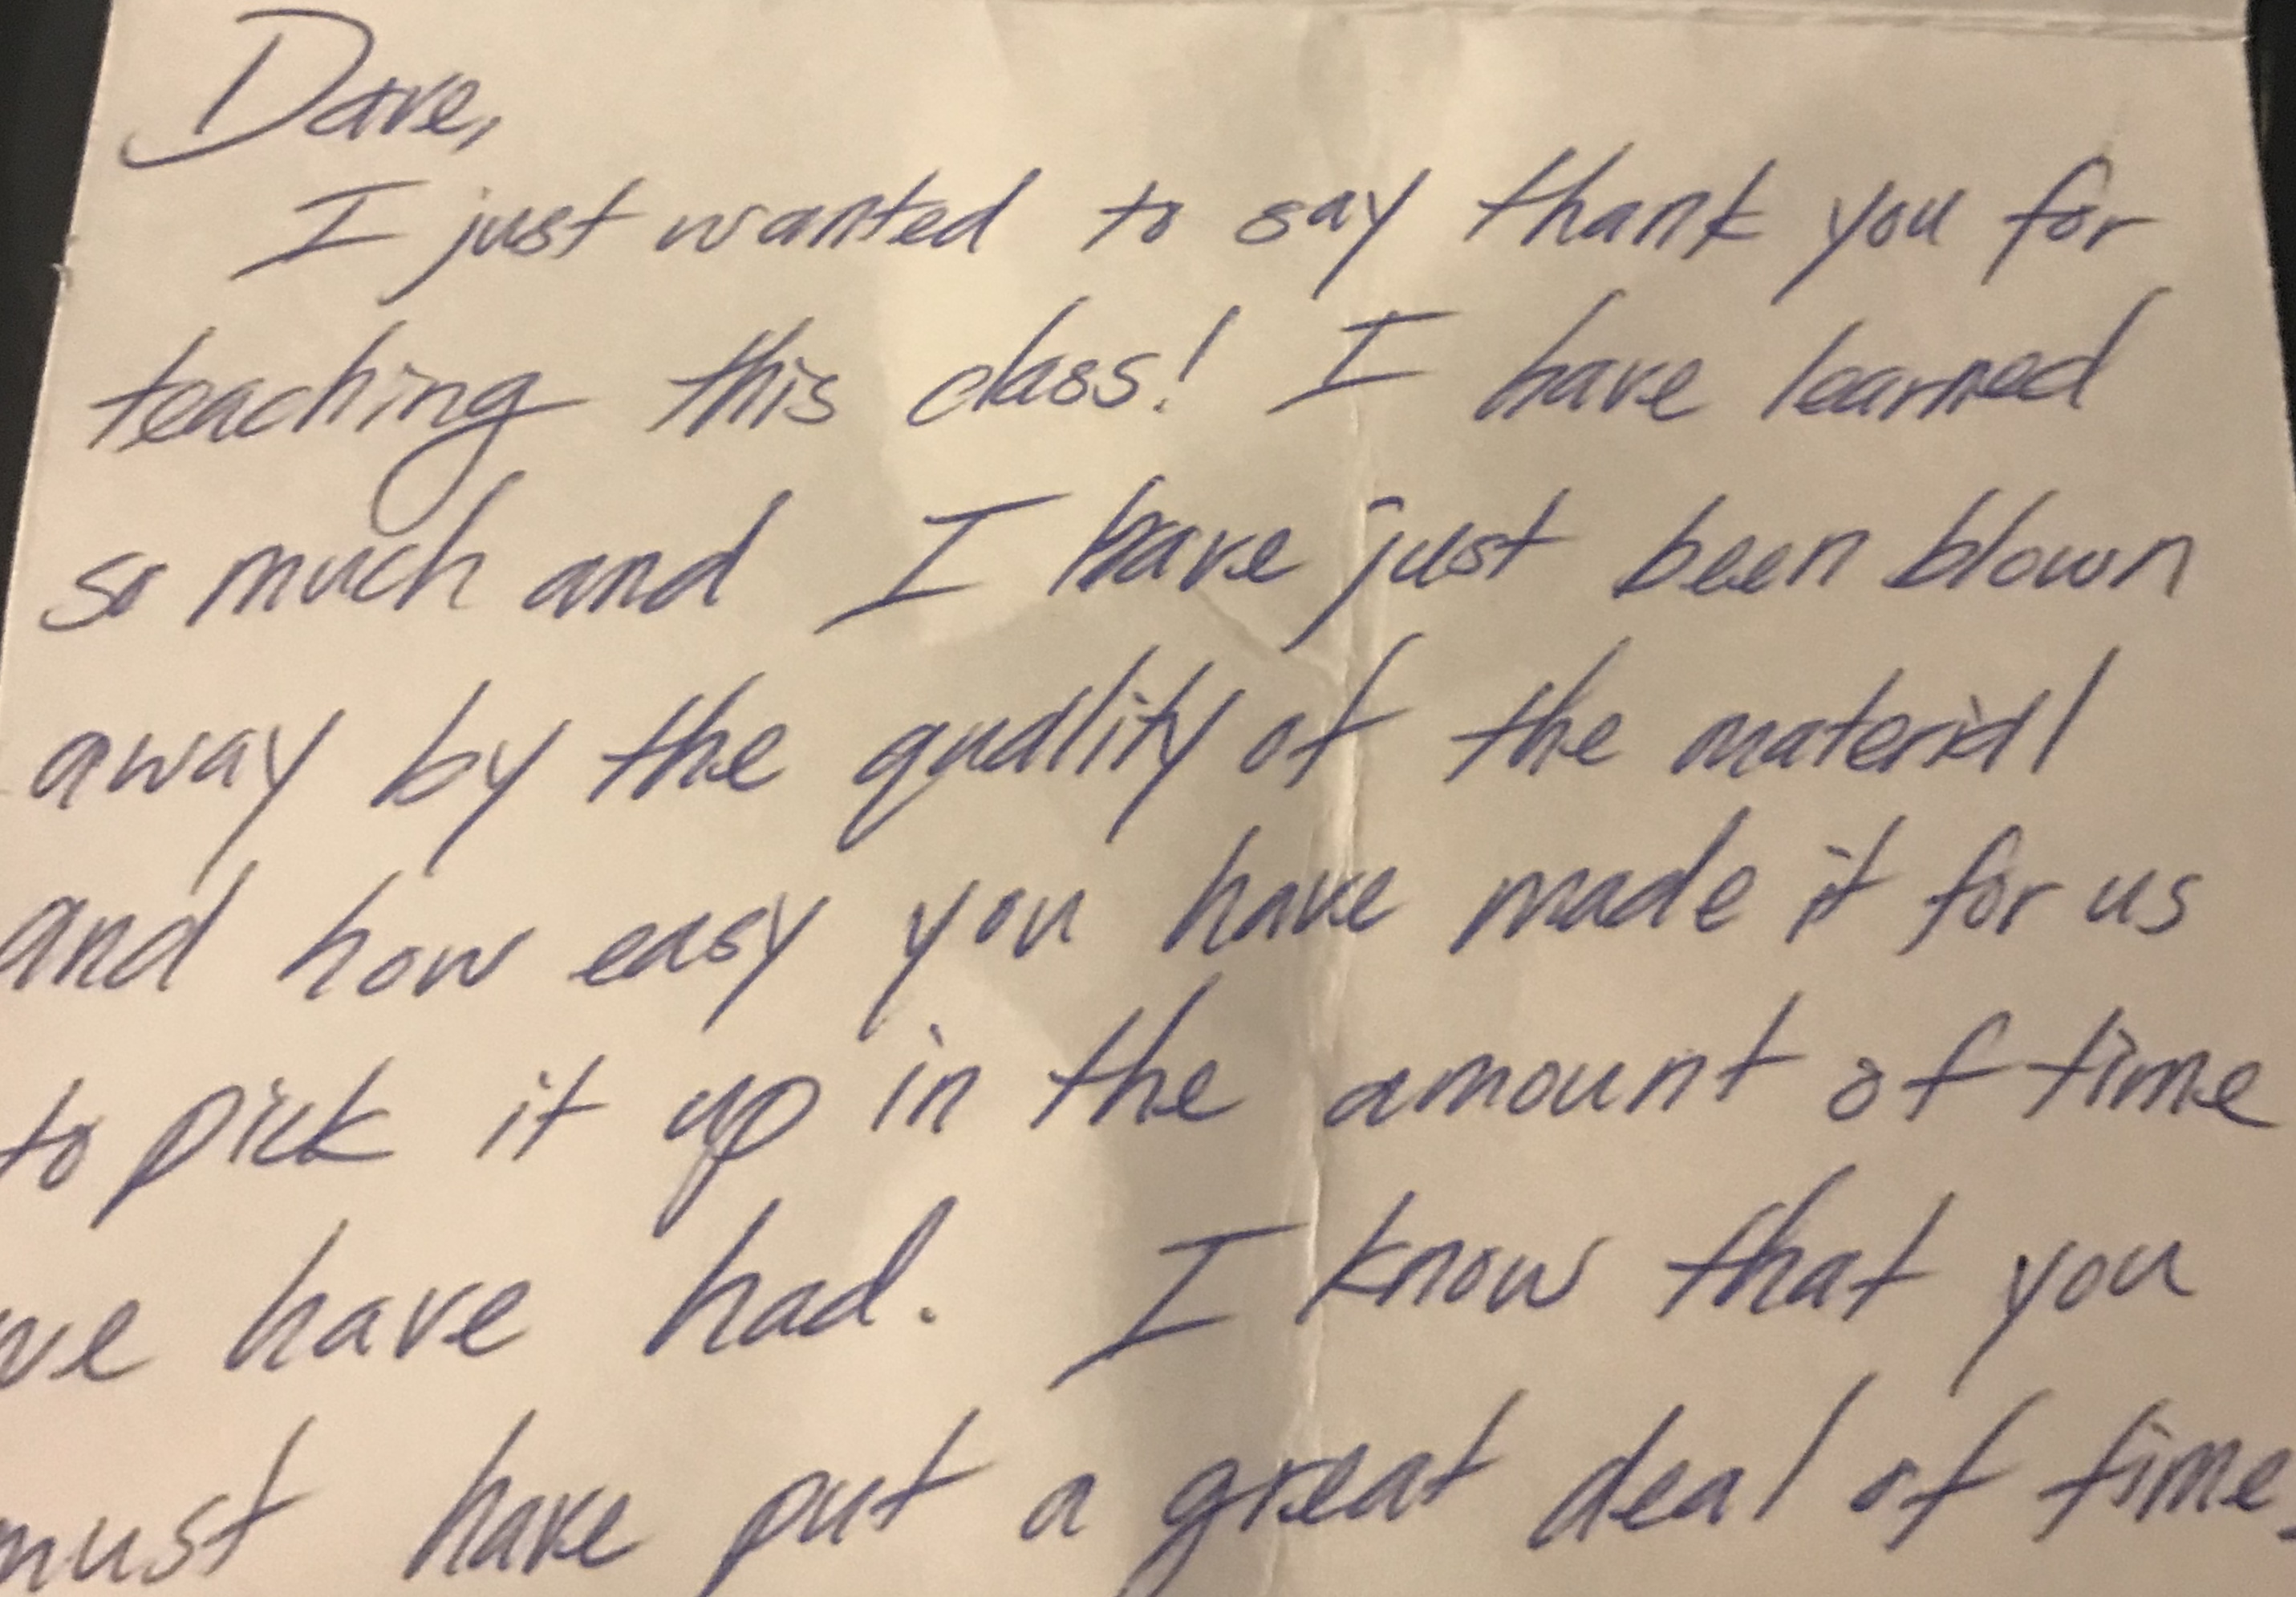 Dave,
I just wanted to say thank you for
teaching this class! I have learned
so much and I have just been blown
away by the quality of the material
and how easy you have made it for us
to pick it up in the amount of time
we have had. I know that you
must have put a great deal of time,